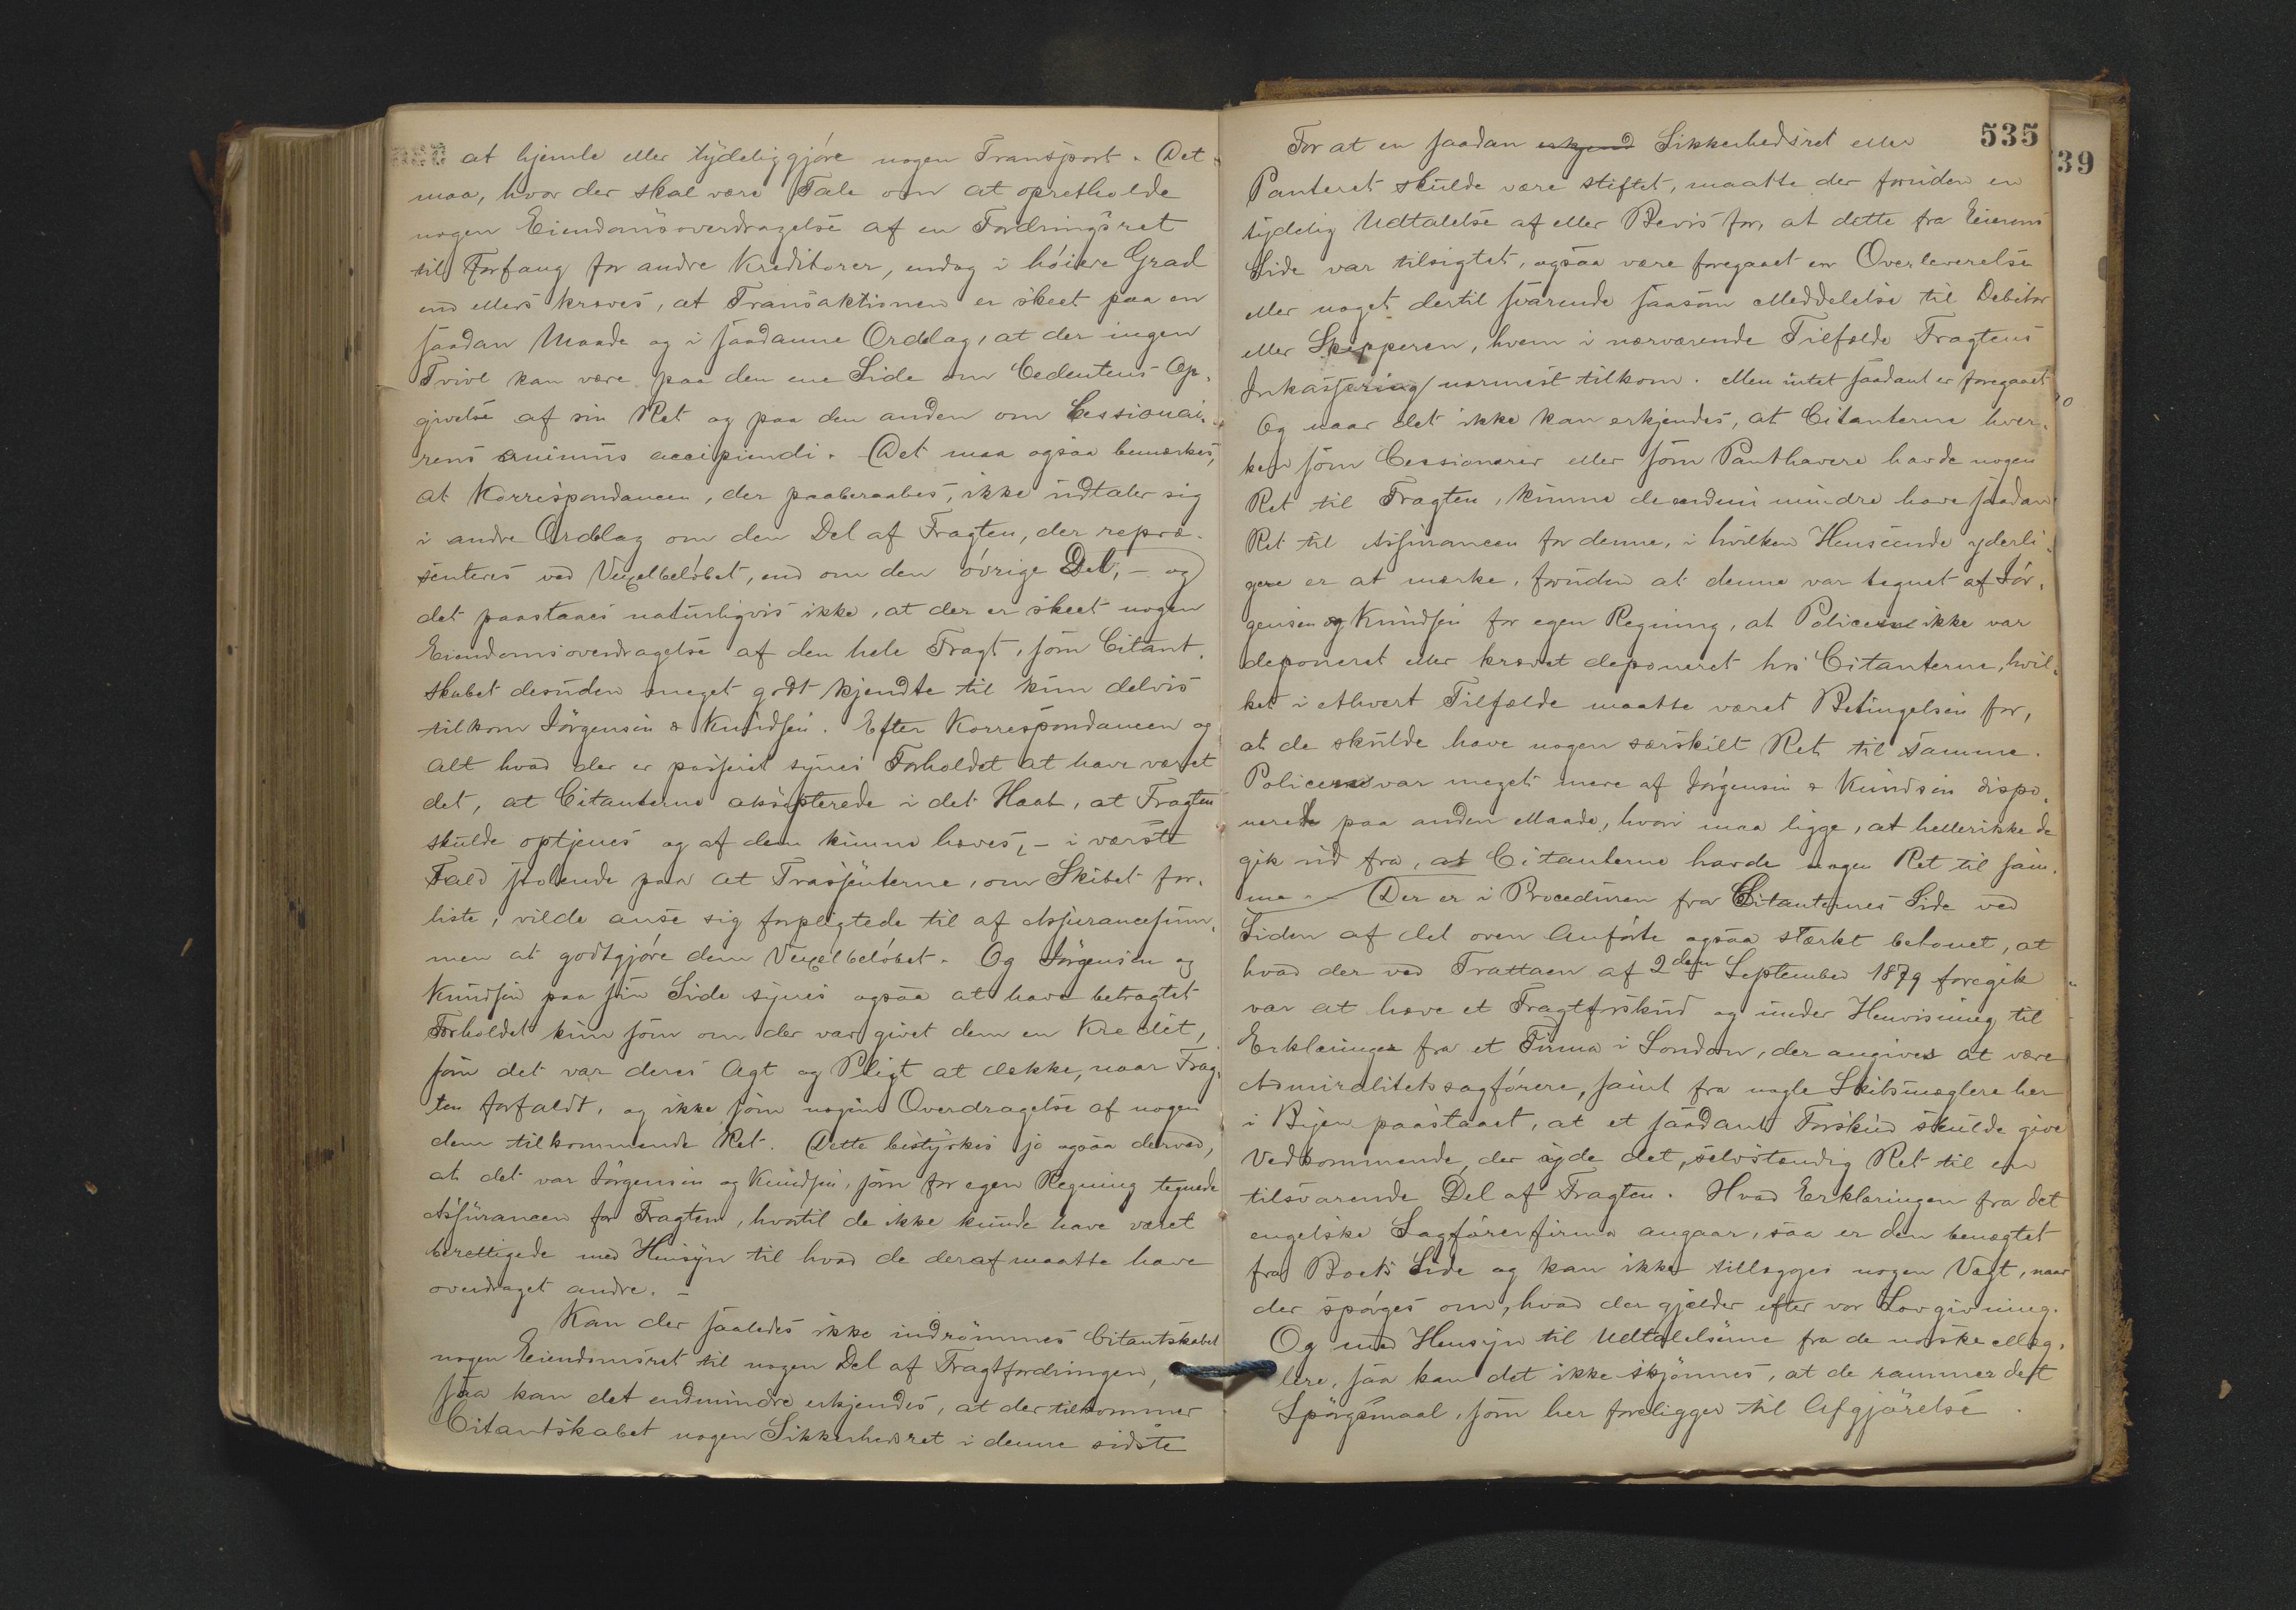 at hjemle eller tydeliggjøre nogen Transport. Det
maa, hvor der skal være Tale om at opretholde
nogen Eiendomsoverdragelse af en Fordringsret
til Forfang for andre Kreditorer, endog i høiere Grad
end ellers kræves, at Transaktionen er skeet paa en
saadan Maade og i saadanne Ordelag, at der ingen
Tvivl kan være paa den ene Side om Cedentens Op-
givelse af sin Ret og paa den anden om Cessionai-
rens animus accipiendi. Det maa ogsaa bemærkes,
at Korrespondancen, der paaberaabes, ikke udtaler sig
i andre Ordelag om den Del af Fragten, der repræ-
senteres ved Vexelbeløbet, end om den øvrige Del, - og
det paastaaes naturligvis ikke, at der er skeet nogen
Eiendomsoverdragelse af den hele Fragt, som Citant-
skabet desuden meget godt kjendte til kun delvis
tilkom Jörgensen & Knudsen. Efter Korrespondancen og
alt hvad der er passeret synes Forholdet at have været
det, at Citanterne aksepterede i det Haab, at Fragten
skulde optjenes og af dem kunne hæves, - i værste
Fald stolende paa at Trassenterne, om Skibet for-
liste, vilde anse sig forpligtede til af Assurancesum-
men at godtgjøre dem Vexelbeløbet. Og Jörgensen og
Knudsen paa sin Side synes ogsaa at have betragtet
Forholdet kun som om der var givet dem en Kredit,
som det var deres Agt og Pligt at dække, naar Frag-
ten forfaldt, og ikke som nogen Overdragelse af nogen
dem tilkommende Ret. Dette bestyrkes jo ogsaa derved,
at det var Jörgensen og Knudsen, som for egen Regning tegnede
Assurancen for Fragten, hvortil de ikke kunde have været
berettigede med Hensyn til hvad de deraf maatte have
overdraget andre. -
Kan der saaledes ikke indrömmes Citantskabet
nogen Eiendomsret til nogen Del af Fragtfordringen,
saa kan det endmindre erkjendes, at der tilkommer
Citantskabet nogen Sikkerhedsret i denne sidste
535
39
For at en saadan erkjend Sikkerhedsret eller
Panteret skulde være stiftet, maatte der foruden en
tydelig Udtalelse af eller Bevis for, at dette fra Eierens
Side var tilsigtet, ogsaa være foregaaet en Overleverelse
eller noget dertil svarende saasom Meddelelse til Debitor
eller Skipperen, hvem i nærværende Tilfælde Fragtens
Inkassering nærmest tilkom. Men intet saadant er foregaaet
Og naar det ikke kan erkjendes, at Citanterne hver-
ken som Cessionærer eller som Panthavere havde nogen
Ret til Fragten, kunne de endnu mindre have saadan
Ret til Assurancen for denne, i hvilken Henseende yderli-
gere er at mærke, foruden at denne var tegnet af Jör-
gensen og Knudsen for egen Regning, at Policerne ikke var
deponeret eller krævet deponeret hos Citanterne, hvil-
ket i ethvert Tilfælde maatte været Betingelsen for,
at de skulde have nogen særskilt Ret til samme.
Policerne var meget mere af Jörgensen & Knudsen dispo-
nerede paa anden Maade, hvori maa ligge, at heller ikke de
gik ud fra, at Citanterne havde nogen Ret til sam-
me. - Der er i Proceduren fra Citanternes Side ved
Siden af det oven Anførte ogsaa stærkt betonet, at
hvad der ved Trattaen af 2den September 1879 foregik
var at hæve et Fragtforskud og under Henvisning til
Erklæringer fra et Firma i London, der angives at være
Admiralitetssagførere, samt fra nogle Skibsmæglere her
i Byen paastaaet, at et saadant Forskud skulde give
Vedkommende, der yde det, selvstændig Ret til en
tilsvarende Del af Fragten. Hvad Erklæringen fra det
engelske Sagförerfirma angaar, saa er den benægtet
fra Boets Side og kan ikke tillægges nogen Vægt, naar
der spørges om, hvad der gjælder efter vor Lovgivning.
Og med Hensyn til Udtalelserne fra de norske Mæg-
lere, saa kan det ikke skjønnes, at de rammer det
Spörgsmaal, som her foreligger til Afgjörelse.